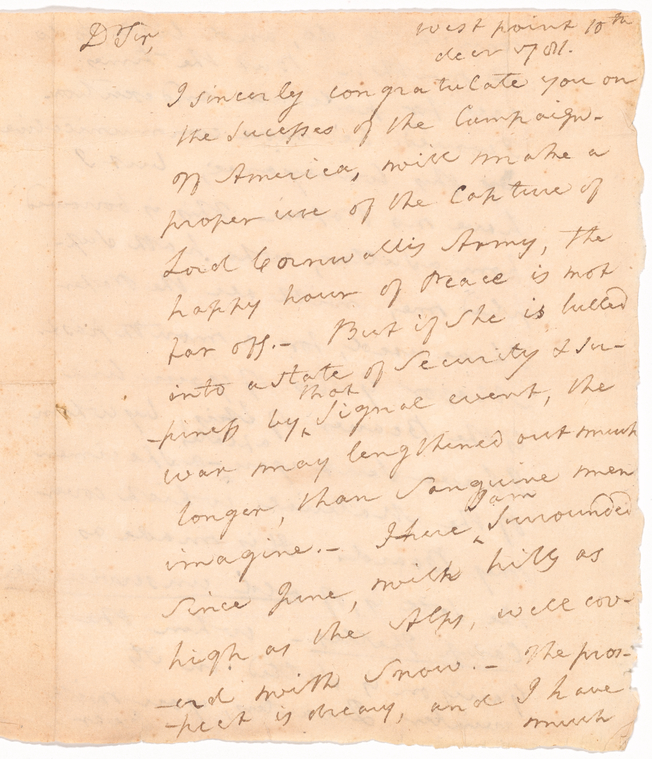 West point 10th
D Sir,
decr 1781.
I sincerly congratulate you on
the Sucesses of the Campaign-
If America, will make a
proper use of the Capture of
Lord Cornwallis Army, the
happy hour of Peace is not
far off.- But if She is lulled
into a State of Security & su-
-piness by that Signal event, the
war may lengthened out much
longer, than Sanguine men
imagine.- I here am Surrounded
Since June, with hills as
high as the Alps, well cov-
-erd with Snow.- The pros-
-pect is dreary, and I have
much